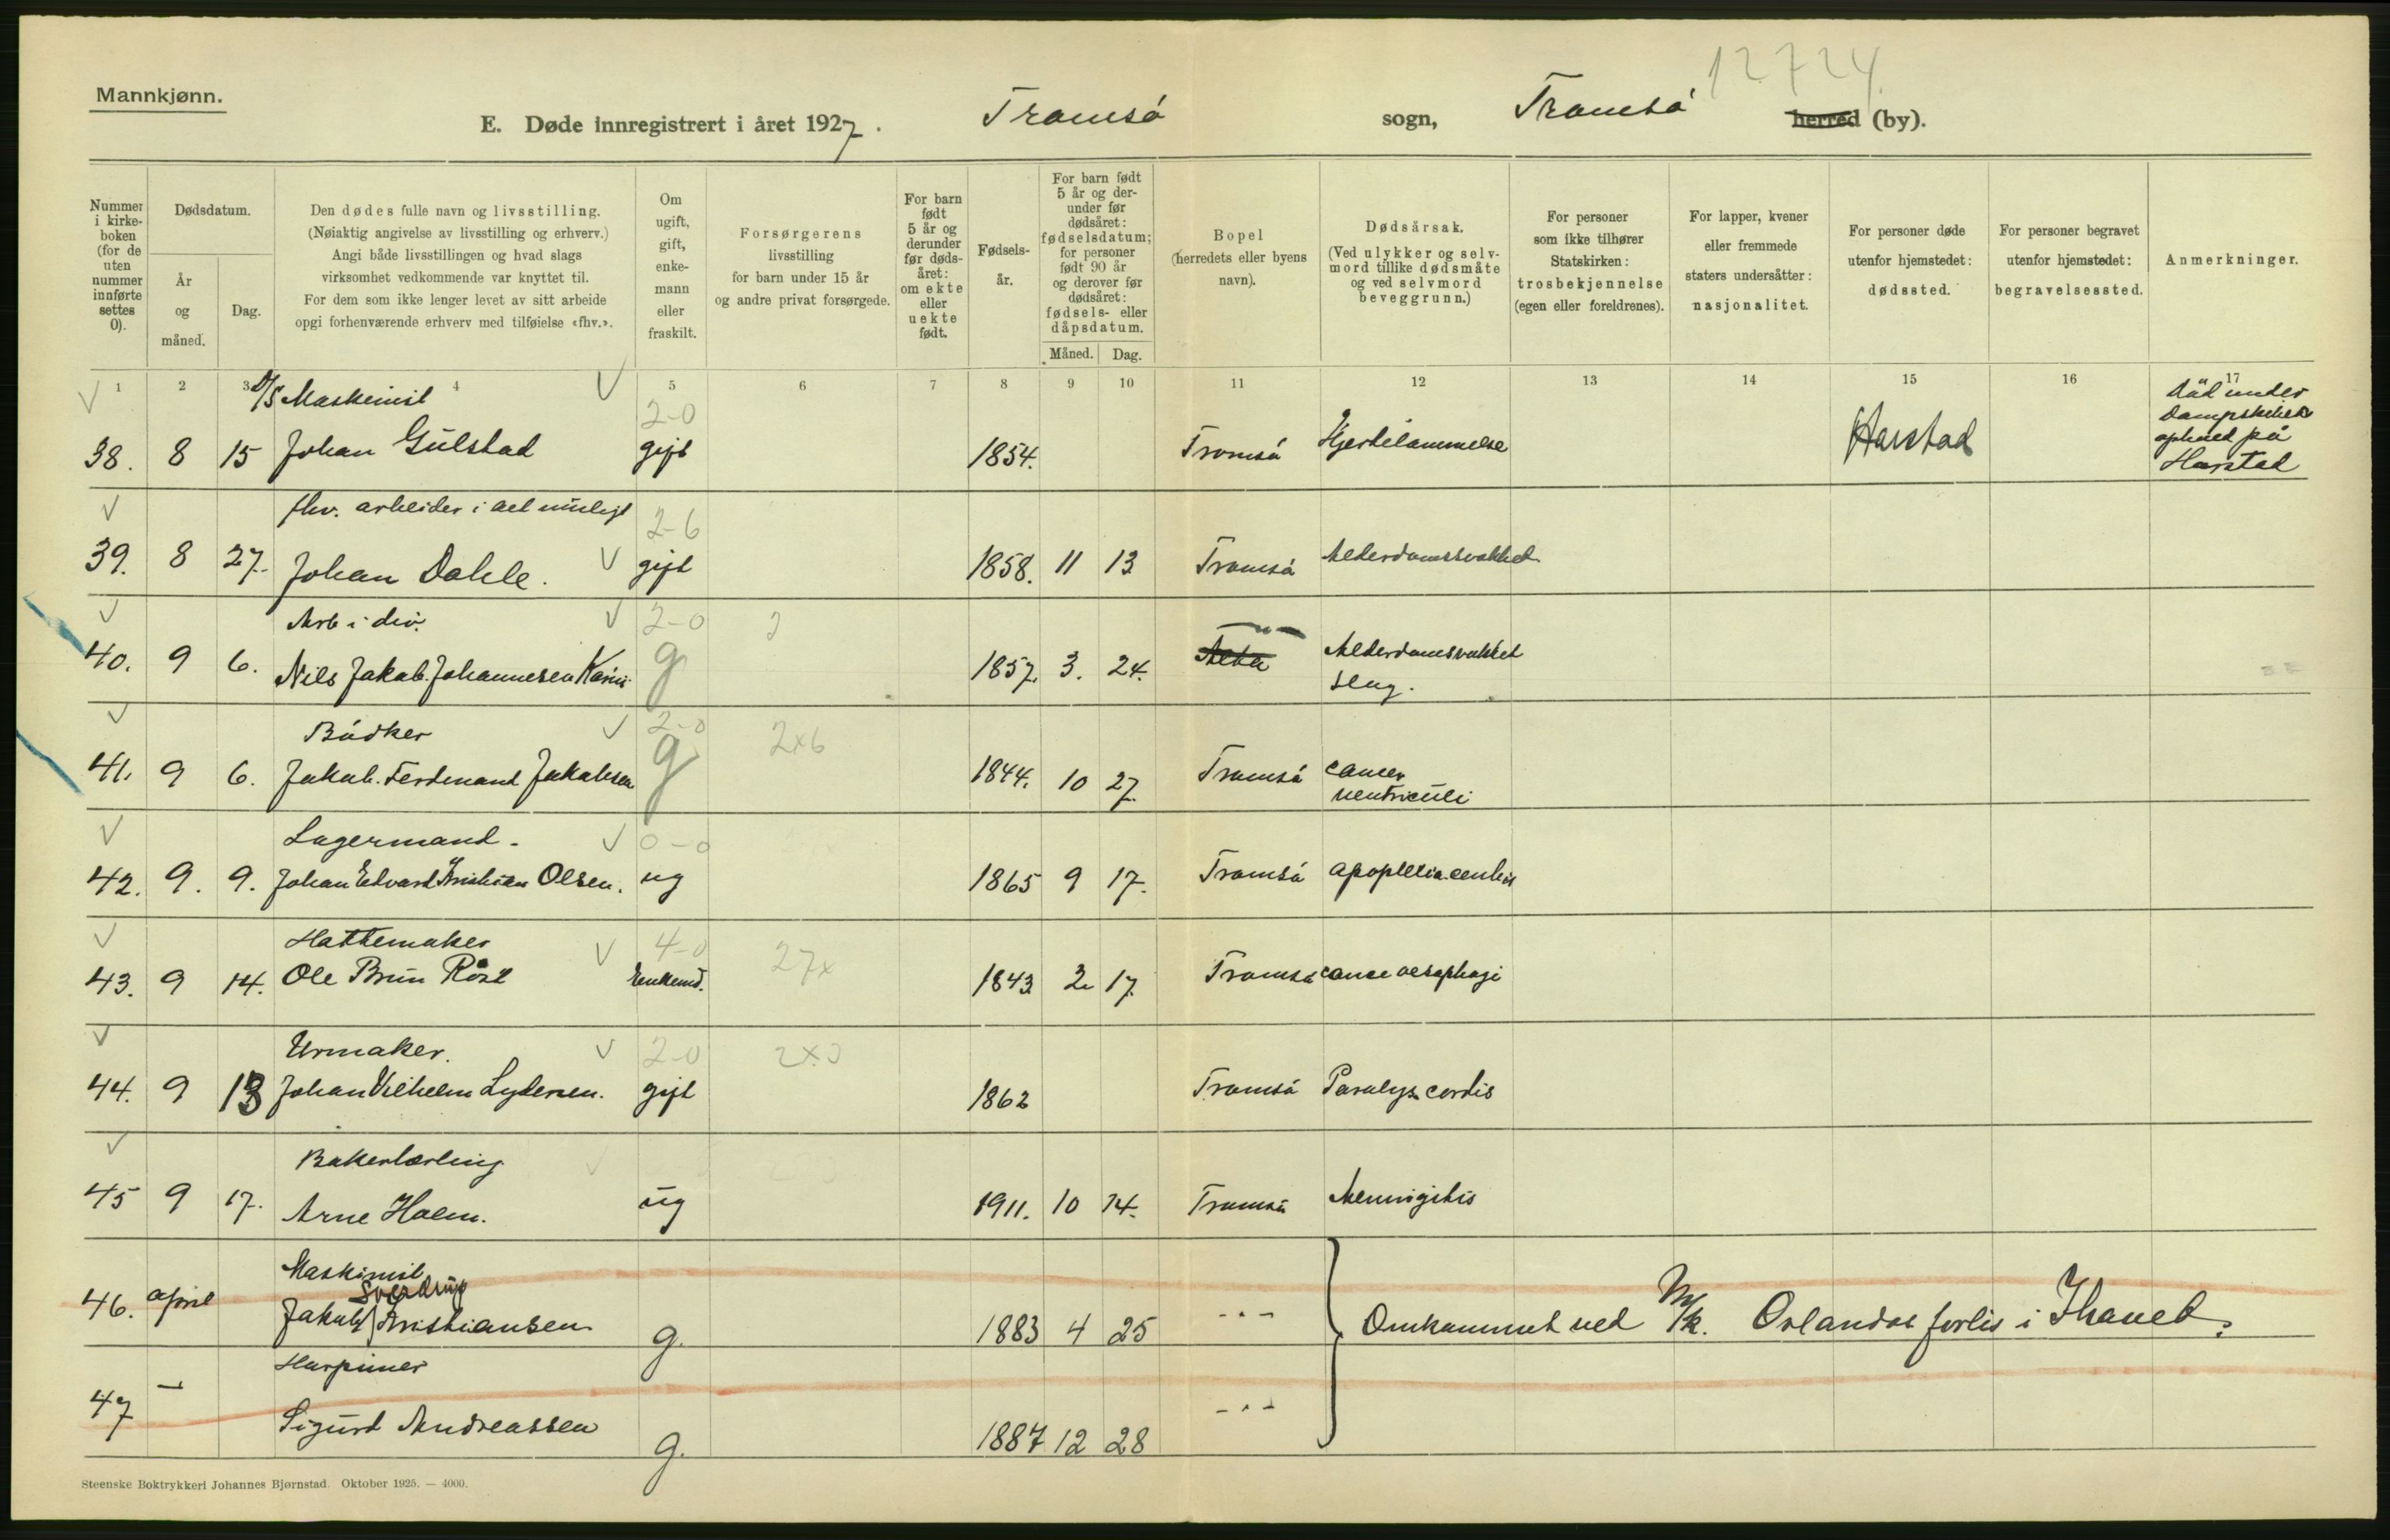 12724
Mannkjønn.
E. Døde innregistrert i året 1927. Tromsø sogn, Tromsø herred (by).
Nummer i kirkeboken (for de uten nummer innførte settes 0).
Dødsdatum.
År og måned.
Dag.
Den dødes fulle navn og livsstilling.
(Nøiaktig angivelse av livsstilling og erhverv.)
Angi både livsstillingen og hvad slags
virksomhet vedkommende var knyttet til.
For dem som ikke lenger levet av sitt arbeide
opgi forhenværende erhverv med tilføielse «fhv.».
Om ugift, gift, enkemann eller fraskilt.
Forsørgerens
livsstilling
for barn under 15 år
og andre privat forsørgede.
For barn født 5 år og derunder før dødsåret: om ekte eller uekte født.
Fødselsår.
For barn født 5 år og derunder før dødsåret: fødselsdatum; for personer født 90 år og derover før dødsåret: fødsels- eller dåpsdatum.
Måned.
Dag.
Bopel
(herredets eller byens
navn).
Dødsårsak.
(Ved ulykker og selvmord tillike dødsmåte og ved selvmord beveggrunn.)
For personer
som ikke tilhører
Statskirken:
trosbekjennelse
(egen eller foreldrenes).
For lapper, kvener
eller fremmede
staters undersåtter:
nasjonalitet.
For personer døde
utenfor hjemstedet:
dødssted.
For personer begravet
utenfor hjemstedet:
begravelsessted.
Anmerkninger.
1 2 3 4 5 6 7 8 9 10 11 12 13 14 15 16 17
D/S Maskinist
2-0
38. 8 15 Johan Gulstad gift 1854. Tromsø Hjertelammelse Harstad
Død under
Dampskibets
ophold på
Harstad
fhv. arbeider i alt muligt
2-6
39. 8 27. Johan Dahle. gift 1858. 11 13 Tromsø Alderdomssvakhet
Arb i div.
2-0 2
40. 9 6. Nils Jakob Johannesen g 1857. 3. 24. Alta Alderdomsvakhet
Bødker
2-0 2x6
41. 9 6. Jakob Ferdinand Jakobsen g 1844. 10 27. Tromsø cancer
ventriculi
Lagermand.
0-0
42. 9. 9. Johan Edvard Kristian Olsen. ug 1865 9 17. Tromsø
Hattemaker
4-0 27x
43. 9 14. Ole Brun Røst Enkemd. 1843 2 17. Tromsø cance oesophagi
Urmaker.
2-0
44. 9 13 Johan Vilhelm Lydersen. gift 1862 Tromsø Paralys. cordis
Bakerlærling
45 9 17. Arne Holm. ug 1911. 10 14. Tromsø Menningitis
Maskinist
Sverdrup
46. april Jakob Kristiansen g. 1883 4 25 - " - Omkommet ved M/k. Orlandos forlis i Ishavet.
Harpuner
47 — Sigurd Andreassen g. 1887 12 28 - " -
Steenske Boktrykkeri Johannes Bjørnstad. Oktober 1925. — 4000.